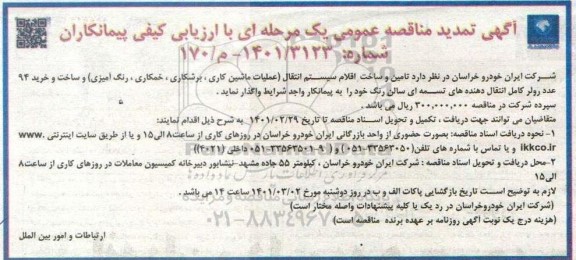 آگهی تمدید مناقصه عمومی یک مرحله ای با ارزیابی کیفی پیمانکاران
شماره: ۱۴۰۱/۳۱۲۳- م/۱۷۰
شرکت ایران خودرو خراسان در نظر دارد تامین و ساخت اقلام سیستم انتقال (عملیات ماشین کاری ، برشکاری ، خمکاری ، رنگ آمیزی) و ساخت و خرید ۹۴
عدد رولر کامل انتقال دهنده های تسمه ای سالن رنگ خود را به پیمانکار واجد شرایط واگذار نماید .
سپرده شرکت در مناقصه ۳۰۰,۰۰۰,۰۰۰ ریال می باشد .
متقاضیان می توانند جهت دریافت ، تکمیل و تحویل اسناد مناقصه تا تاریخ ۱۴۰۱/۰۲/۲۹ به شرح ذیل اقدام نمایند:
۱- نحوه دریافت اسناد مناقصه: بصورت حضوری از واحد بازرگانی ایران خودرو خراسان در روزهای کاری از ساعت۸ الی۱۵ و یا از طریق سایت اینترنتی www.
ikkco.ir و یا تماس با شماره های تلفن(۳۳۵۶۳۰۵۰-۰۵۱ و ۹-۳۳۵۶۳۵۰۱-۰۵۱ داخلی ۴۰۲۱)
۲-محل دریافت و تحویل اسناد مناقصه : شرکت ایران خودرو خراسان ، کیلومتر ۵۵ جاده مشهد-نیشابور دبیرخانه کمیسیون معاملات در روزهای کاری از ساعت۸
الی۱۵
لازم به توضیح است تاریخ بازگشایی پاکات الف و ب در روز دوشنبه مورخ ۱۴۰۱/۰۳/۰۲ ساعت ۱۴ می باشد .
(شرکت ایران خودروخراسان در رد یک یا کلیه پیشنهادات واصله مختار است)
(هزینه درج یک نوبت آگهی روزنامه بر عهده برنده مناقصه است)
ارتباطات و امور بین الملل
۰۲۱-۸۸۳۴۹۶۷۰